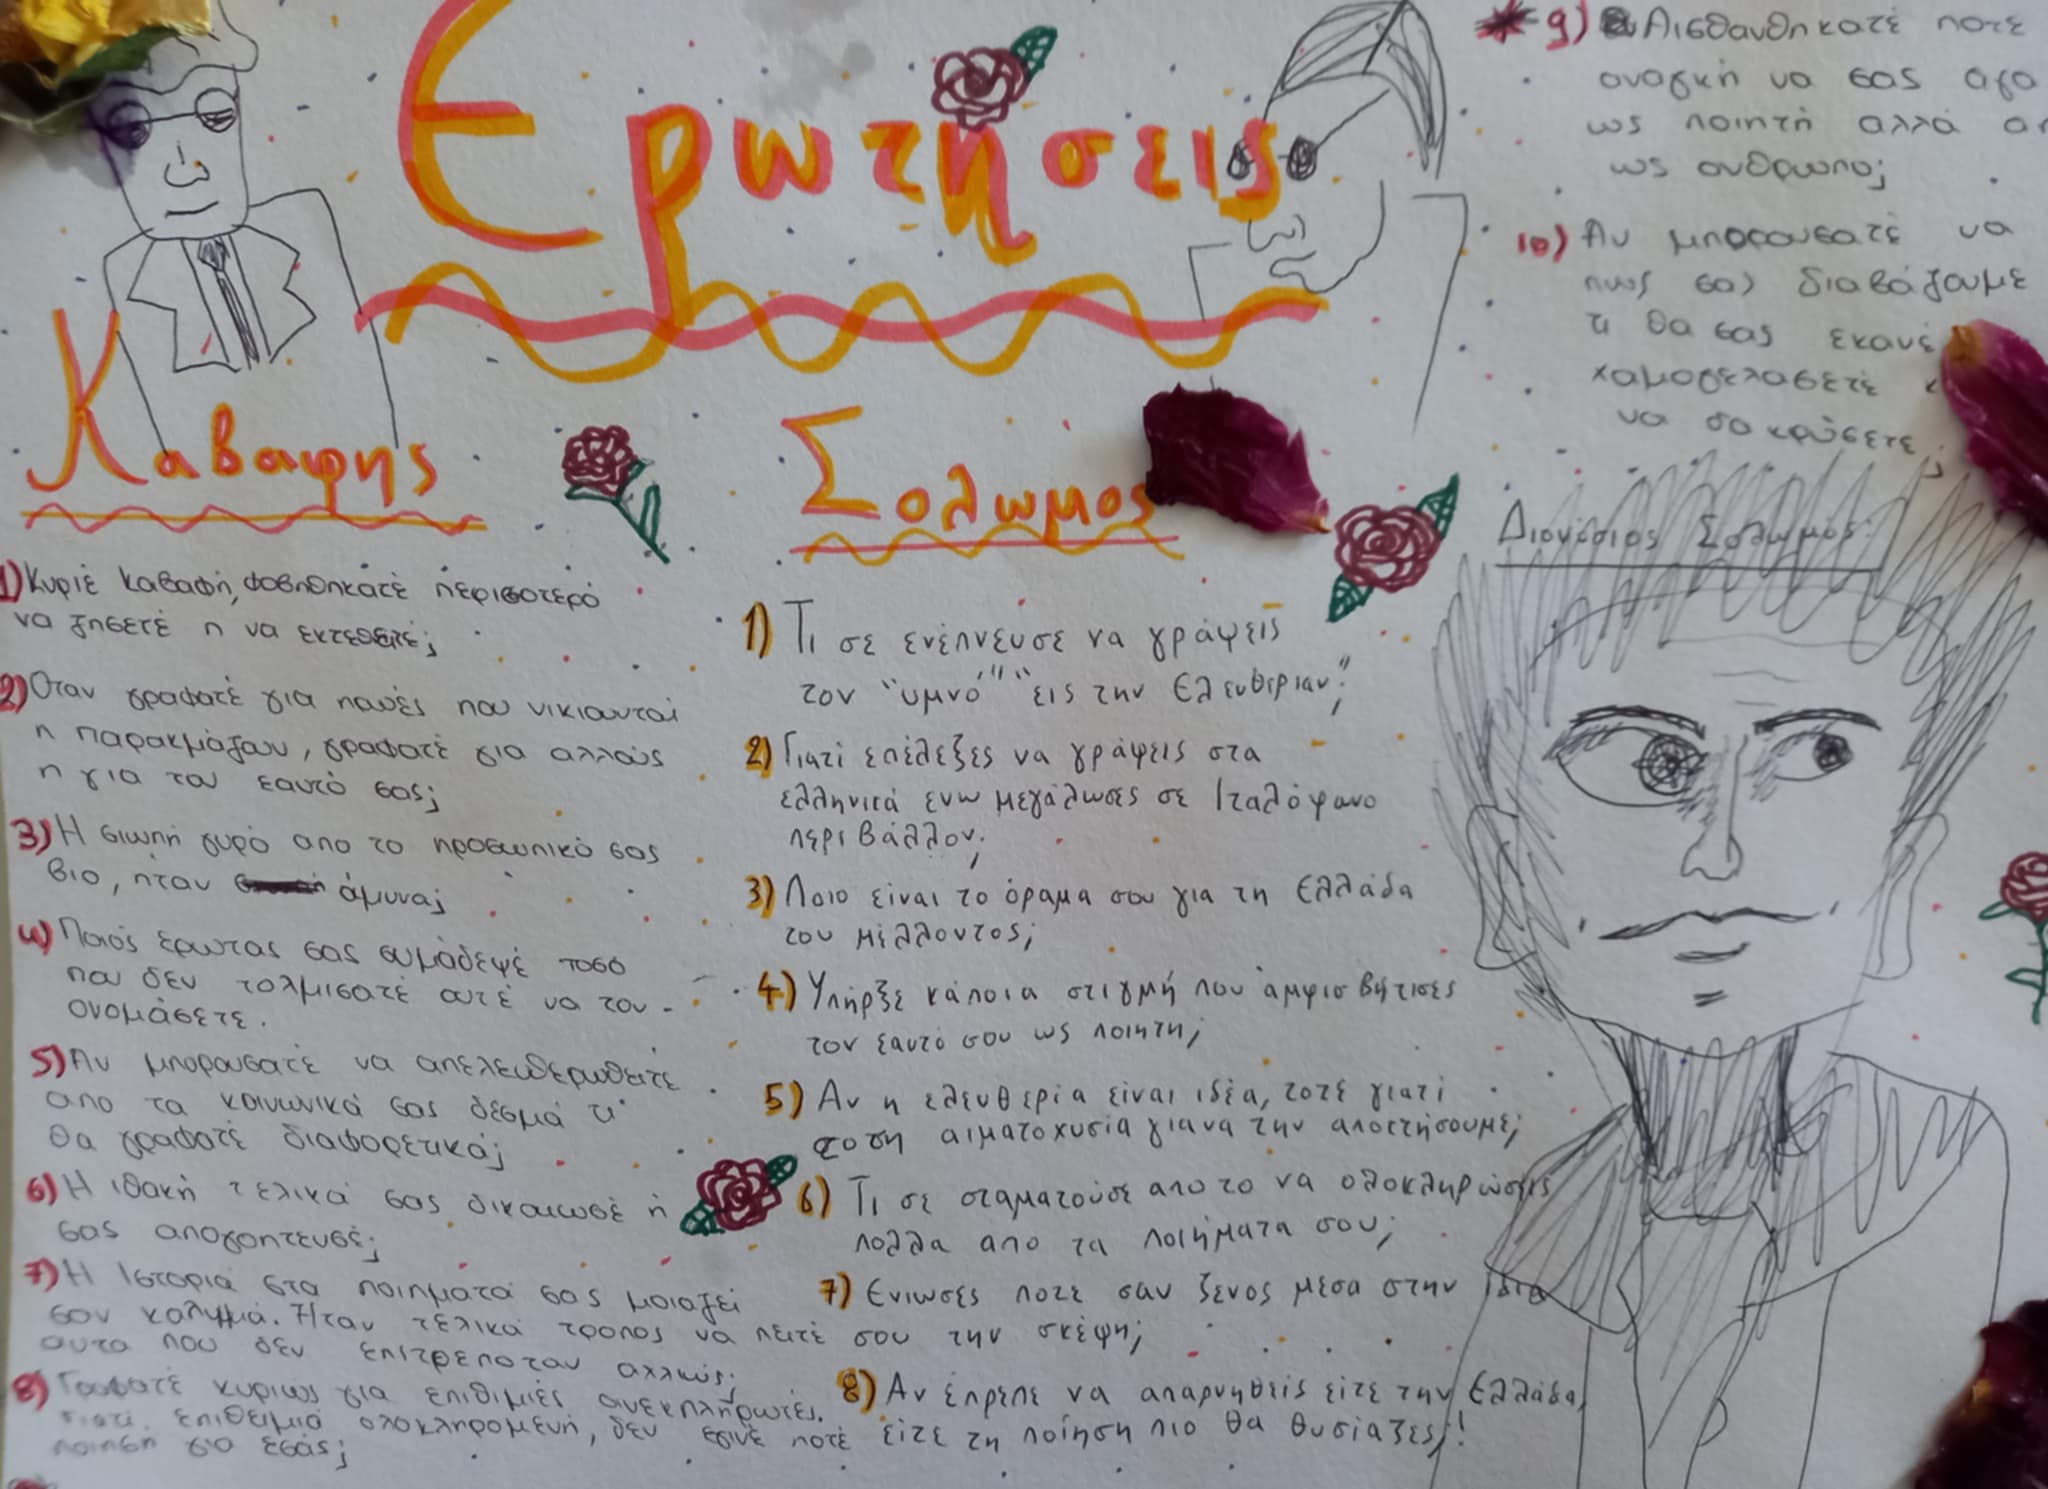 Ερωτησεις
Καβαφης
1) Κυριέ Καβαφή, φοβηθηκατέ περισοτερό
να ζησετέ η να εκτεθειτέ;
2) Οταν γραφατέ για ποιές που νικιουνται
η παρακμάζουν, γραφατέ για αλλούς
η για τον εαυτό σας;
3) Η σιωπή γυρό απο το προσωπικό σας
βιο, ηταν άμυνα;
4) Ποιός ερωτας σας σημάδεψέ τοσο
που δεν τολμισατέ ουτέ να τον -
ονομάσετε.
5) Αν μπορουσατέ να απελευθερωθειτέ
απο τα κοινωνικά σας δεσμά τι
θα γραφατέ διαφορετικά;
6) Η ιθακή τελικά σας δικαιωσέ ή
σας απογοητευσέ;
7) Η Ιστοριά στα ποιηματά σας μοιαζεί
σαν καλυμμά. Ηταν τελικά τροπος να πειτέ
αυτα που δεν επιτρεποταν αλλιώς;
8) Γραφατέ κυριώς για επιθιμιές ανεκπλήρωτές.
Γιατί επιθειμιά ολοκληρομενή, δεν εγινέ ποτέ
ποιηση για εσάς;
Σολωμος
1) Τι σε ενέπνευσε να γράψεις
τον "υμνό" "εις την Ελευθεριαν";
2) Γιατί επέλεξες να γράψεις στα
ελληνικά ενω μεγάλωσες σε Ιταλόφωνο
περιβάλλον;
3) Ποιο είναι το όραμα σου για τη Ελλάδα
του μέλλοντος;
4) Υπήρξε κάποια στιγμή που άμφισβήτισες
τον εαυτό σου ως ποιητη;
5) Αν η ελευθερία είναι ιδέα, τοτέ γιατί
τοση αιματοχυσία γιανα την αποκτήσουμε;
6) Τι σε σταματούσε απο το να ολοκληρώσεις
πολλα απο τα ποιήματα σου;
7) Ενιωσες ποτε σαν ξενος μεσα στην ίδια
σου την σκέψη;
8) Αν έπρεπε να απαρνηθείς είτε την Ελλάδα,
είτε τη ποίηση πιο θα θυσίαζες;!
9) Αισθανθηκατέ ποτέ
αναγκή να σας αγα
ως ποιητή αλλά απ
ως ανθρωπο;
10) Αν μπορουσατέ να
πως σας διαβάζουμε
τι θα σας εκανέ
χαμογελασετέ κ
να δακρύσετε;
Διονύσιος Σολωμός: